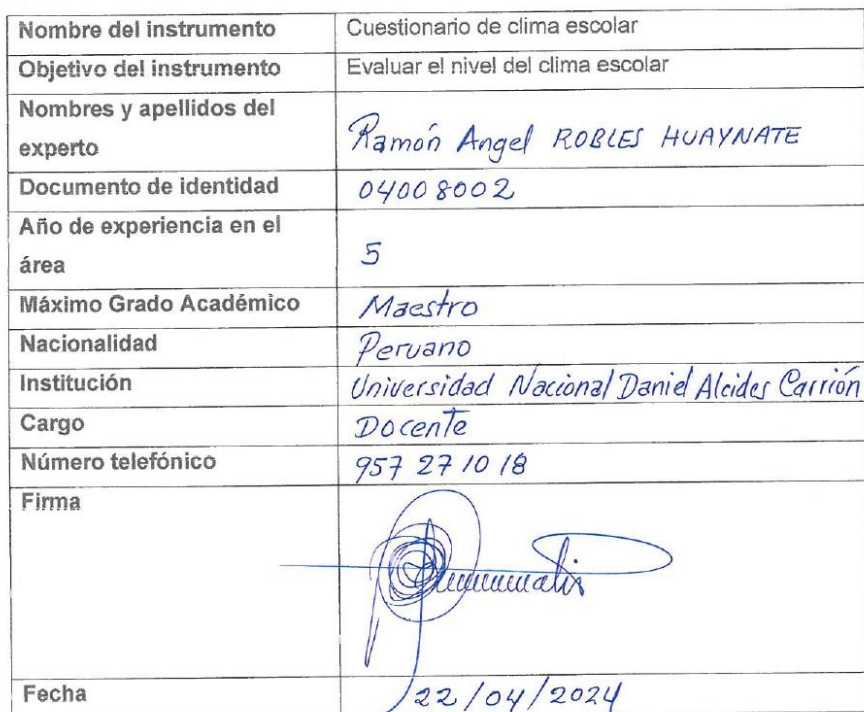 Nombre del instrumento Cuestionario de clima escolar
Objetivo del instrumento Evaluar el nivel del clima escolar
Nombres y apellidos del
experto Ramón Angel ROBLES HUAYNATE
Documento de identidad 04008002
Año de experiencia en el
área 5
Máximo Grado Académico Maestro
Nacionalidad Peruano
Institución Universidad Nacional Daniel Alcides Carrión
Cargo Docente
Número telefónico 957 27 10 18
Firma
Fecha 22/04/2024